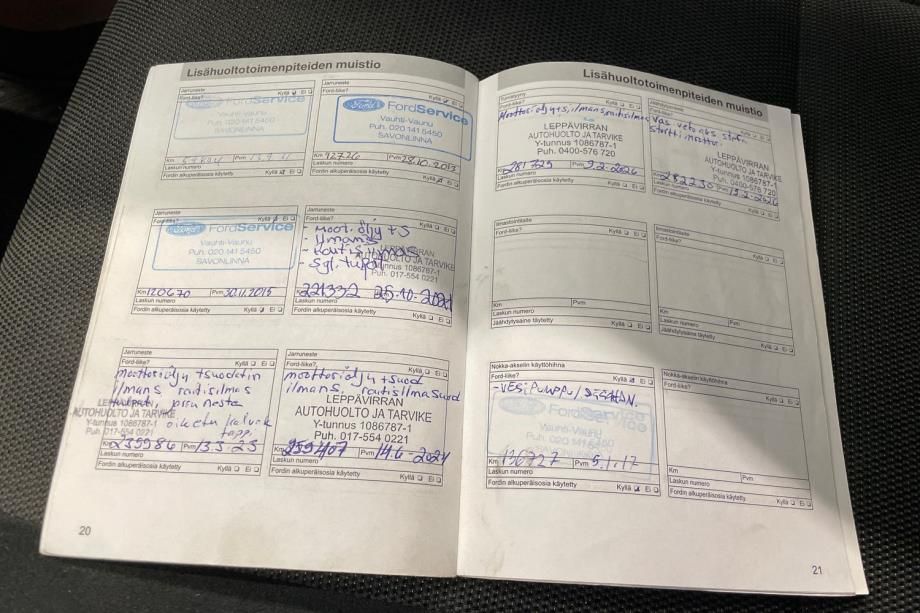 Lisähuoltotoimenpiteiden muistio
Jarruneste
Ford-liike? Kyllä Ei
Ford FordService
Vauhti-Vaunu
Puh. 020 141 5450
SAVONLINNA
Km Pvm
Laskun numero
Fordin alkuperäisosia käytetty Kyllä Ei
Jarruneste
Ford-liike? Kyllä Ei
Ford FordService
Vauhti-Vaunu
Puh. 020 141 5450
SAVONLINNA
Km 92726 Pvm 28.10.2013
Laskun numero
Fordin alkuperäisosia käytetty Kyllä Ei
Jarruneste
Ford-liike? Kyllä Ei
Ford FordService
Vauhti-Vaunu
Puh. 020 141 5450
SAVONLINNA
Km 120670 Pvm 30.11.2015
Laskun numero
Fordin alkuperäisosia käytetty Kyllä Ei
Jarruneste
- Moot. öljy + S
- ilmans
- Rautis
- Sgl.
LEPPÄVIRRAN
Y-tunnus 1086787-1
Puh. 017-554 0221
221332 25.10.2021
Laskun numero
Fordin alkuperäisosia käytetty Kyllä Ei
Jarruneste
Ford-liike? Kyllä Ei
moottoriöljy + suodatin
ilmans raitisilmas
jarruneste
LEPPÄVIRRAN
AUTOHUOLTO JA TARVIKE
Y-tunnus 1086787-1
Puh. 017-554 0221
oikea
Km 239986 Pvm 13.3-23
Laskun numero
Fordin alkuperäisosia käytetty Kyllä Ei
Jarruneste
Ford-liike? Kyllä Ei
moottoriöljy + suod
ilmans, raitisilmasuod
LEPPÄVIRRAN
AUTOHUOLTO JA TARVIKE
Y-tunnus 1086787-1
Puh. 017-554 0221
Km 259407 Pvm 14.6-2024
Laskun numero
Fordin alkuperäisosia käytetty Kyllä Ei
20
Lisähuoltotoimenpiteiden muistio
Ford-liike? Kyllä Ei
Moottoriöljy+s, ilmans, raitisilmas
LEPPÄVIRRAN
AUTOHUOLTO JA TARVIKE
Y-tunnus 1086787-1
Puh. 0400-576 720
Km 281729 Pvm 2-2-2026
Laskun numero
Fordin alkuperäisosia käytetty Kyllä Ei
Jäähdytysneste
Kyllä Ei
Vas
LEPPÄVIRRAN
AUTOHUOLTO JA TARVIKE
Y-tunnus 1086787-1
Puh. 0400-576 720
Km 282230 Pvm 19-2-2026
Laskun numero
Fordin alkuperäisosia käytetty Kyllä Ei
Ilmastointilaite
Ford-liike? Kyllä Ei
Km Pvm
Laskun numero
Jäähdytysaine täytetty Kyllä Ei
Ilmastointilaite
Ford-liike? Kyllä Ei
Km Pvm
Laskun numero
Jäähdytysaine täytetty Kyllä Ei
Nokka-akselin käyttöhihna
Ford-liike? Kyllä Ei
- VESIPUMPPU
Ford FordService
Vauhti-Vaunu
Puh. 020 141 5450
SAVONLINNA
Km 136727 Pvm 5.1.17
Laskun numero
Fordin alkuperäisosia käytetty Kyllä Ei
Nokka-akselin käyttöhihna
Ford-liike? Kyllä Ei
Km Pvm
Laskun numero
Fordin alkuperäisosia käytetty Kyllä Ei
21